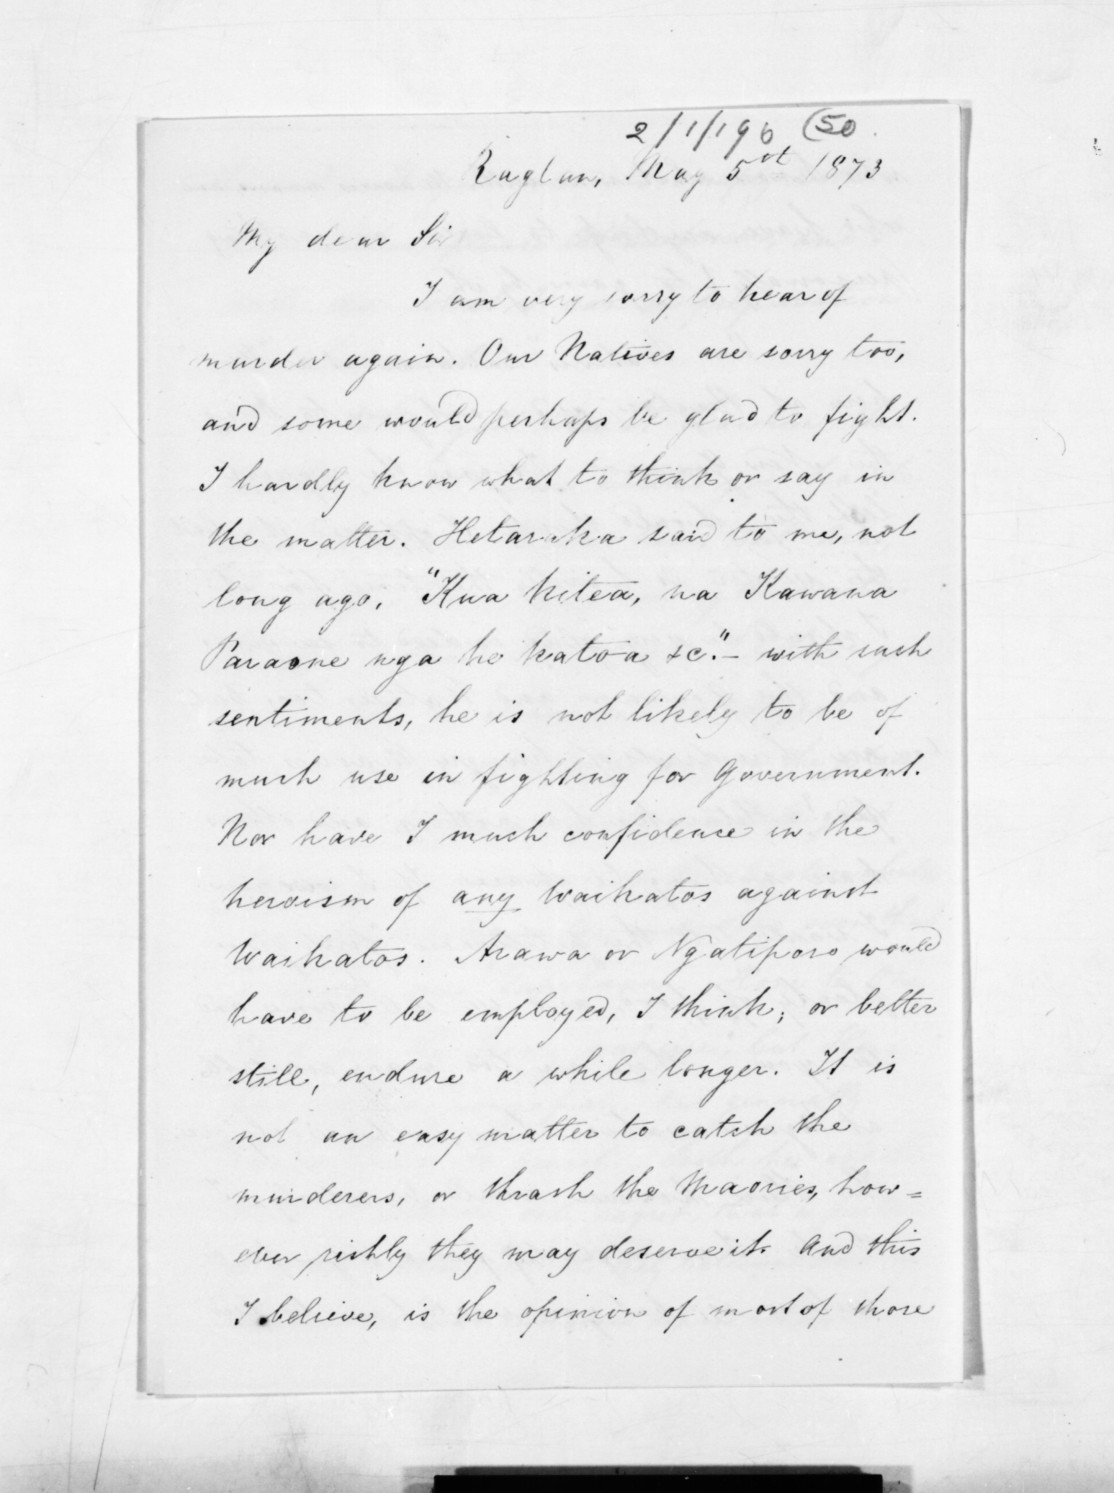 2/1/196 (50
Raglan, May 5st 1873
My dear Sir
I am very sorry to hear of
murder again. Our Natives are sorry too,
and some would perhaps be glad to fight.
I hardly know what to think or say in
the matter. Hetaraka said to me, not
long ago, "Kua kitea, na Kawana
Paraone nga he katoa &c." – with such
sentiments, he is not likely to be of
much use in fighting for Government.
Nor have I much confidence in the
heroism of any Waikatos against
Waikatos. Arawa or Ngatiporo would
have to be employed, I think; or better
still, endure a while longer. It is
not an easy matter to catch the
murderers, or thrash the Maories, how=
ever richly they may deserve it. And this
I believe, is the opinion of most of those